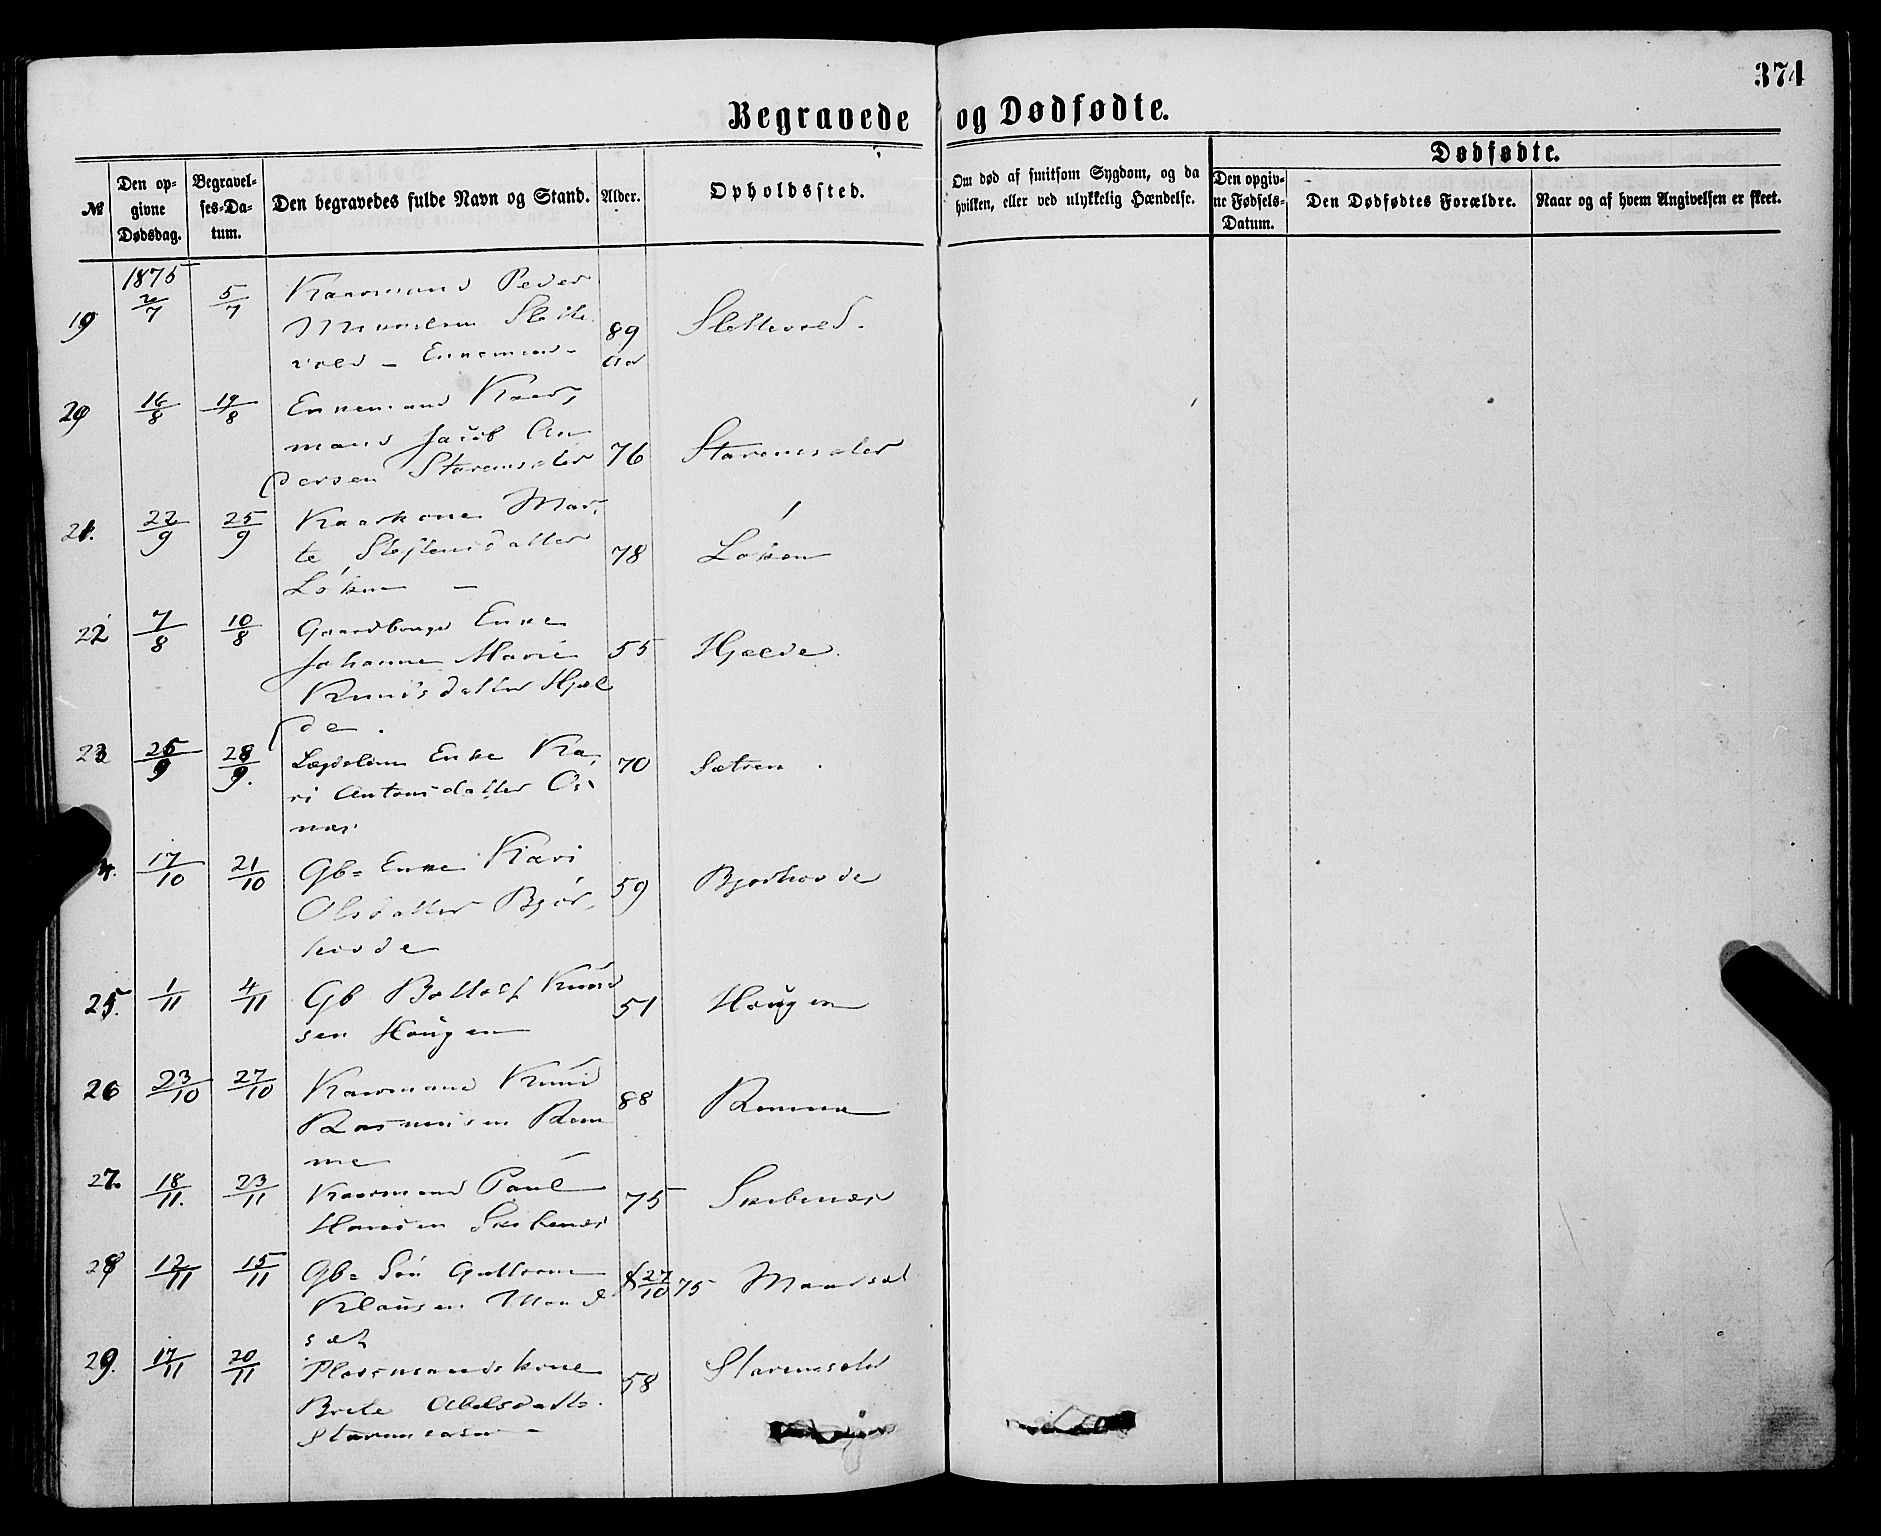 374
Begravede og Dødfødte.
Dødfødte.
№
Den op-
givne
Dødsdag.
Begravel-
ses-Da-
tum.
Den begravedes fulde Navn og Stand.
Alder.
Opholdssted.
Om død af smitsom Sygdom, og da
hvilken, eller ved ulykkelig Hændelse.
Den opgiv-
ne Fødsels-
Datum.
Den Dødfødtes Forældre.
Naar og af hvem Angivelsen er skeet.
1875
19 2/7 5/7 Kaarmand Peder
Slette
vold - Enkemand - 89 Aar Slettevold.
20 16/8 19/8 Enkemand Kaar,
mand Jacob An
dersen Starensæter 76 Starensæter
21. 22/9 25/9 Kaarkone Mar,
te Steffensdatter
Løken - 78 Løken
22 7/8 10/8 Gaardbruger Enke
Johanne Marie
Knudsdatter Hjel
de. 55 Hjelde.
23 25/9 28/9. Lægdslem Enke Ka,
ri Antonsdatter Os,
næs 70 Sætren.
4. 17/10 21/10 Gb= Enke Kari
Olsdatter Bjør,
hovde 59 Bjørhovde
25. 1/11 4/11 Gb Bottolf Knud
sen Hougen 51 Hougen
26 23/10 27/10 Kaarmand Knud
Rasmusen Rem
me 88 Remme
27. 18/11. 23/11 Kaarmand Paul
Hansen Skibenæs 75 Skibenæs
28 12/11 15/11 Gb= Søn Guttorm
Klausen Mand
sæt f 27/10 75 Mandsæt
29. 17/11 20/11 Pladsmandskone
Brete Abelsdatt=
Starensæter - 58 Starensæter